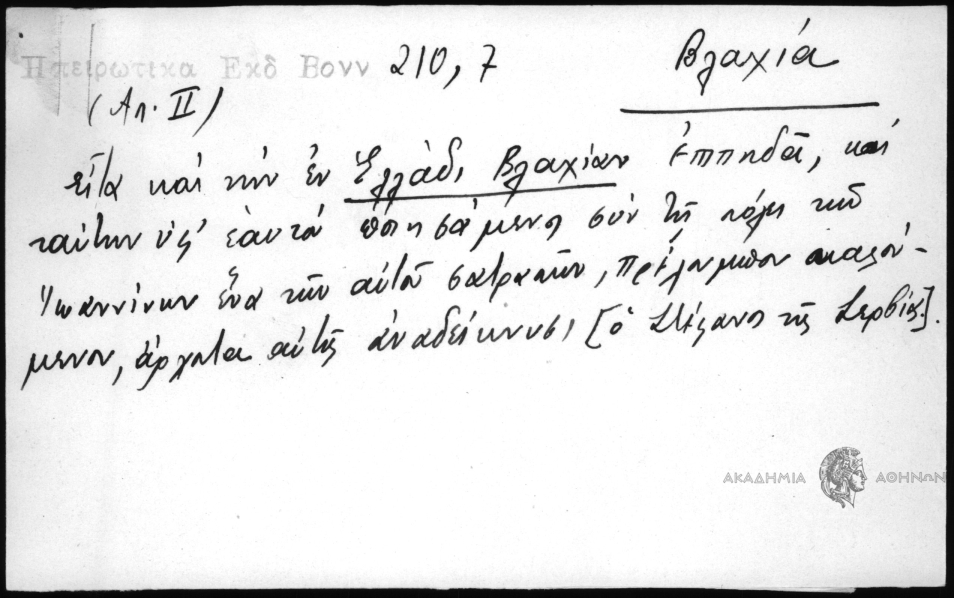 Ηπειρωτικα Εκδ Βονν 210, 7 Βλαχία
(Απ. II)
εἶτα καὶ τὴν ἐν Ἑλλάδι Βλαχίαν ἐππηδᾶ, καὶ
ταύτην ὑφ' ἑαυτὸν ποιησάμενος σὺν τῇ πόλει τῶν
Ἰωαννίνων ἕνα τῶν αὐτοῦ σατραπῶν, Πρέλουμπον καλού-
μενον, ἄρχοντα αὐτῆς ἀναδείκνυσι [ὁ Στέφανος τῆς Σερβίας].
ΑΚΑΔΗΜΙΑ ΑΘΗΝΩΝ